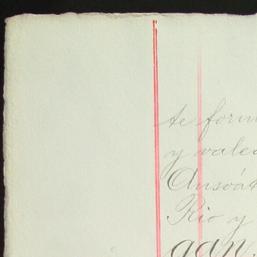 te form
y valed
Ansoát
Rio y
gan.